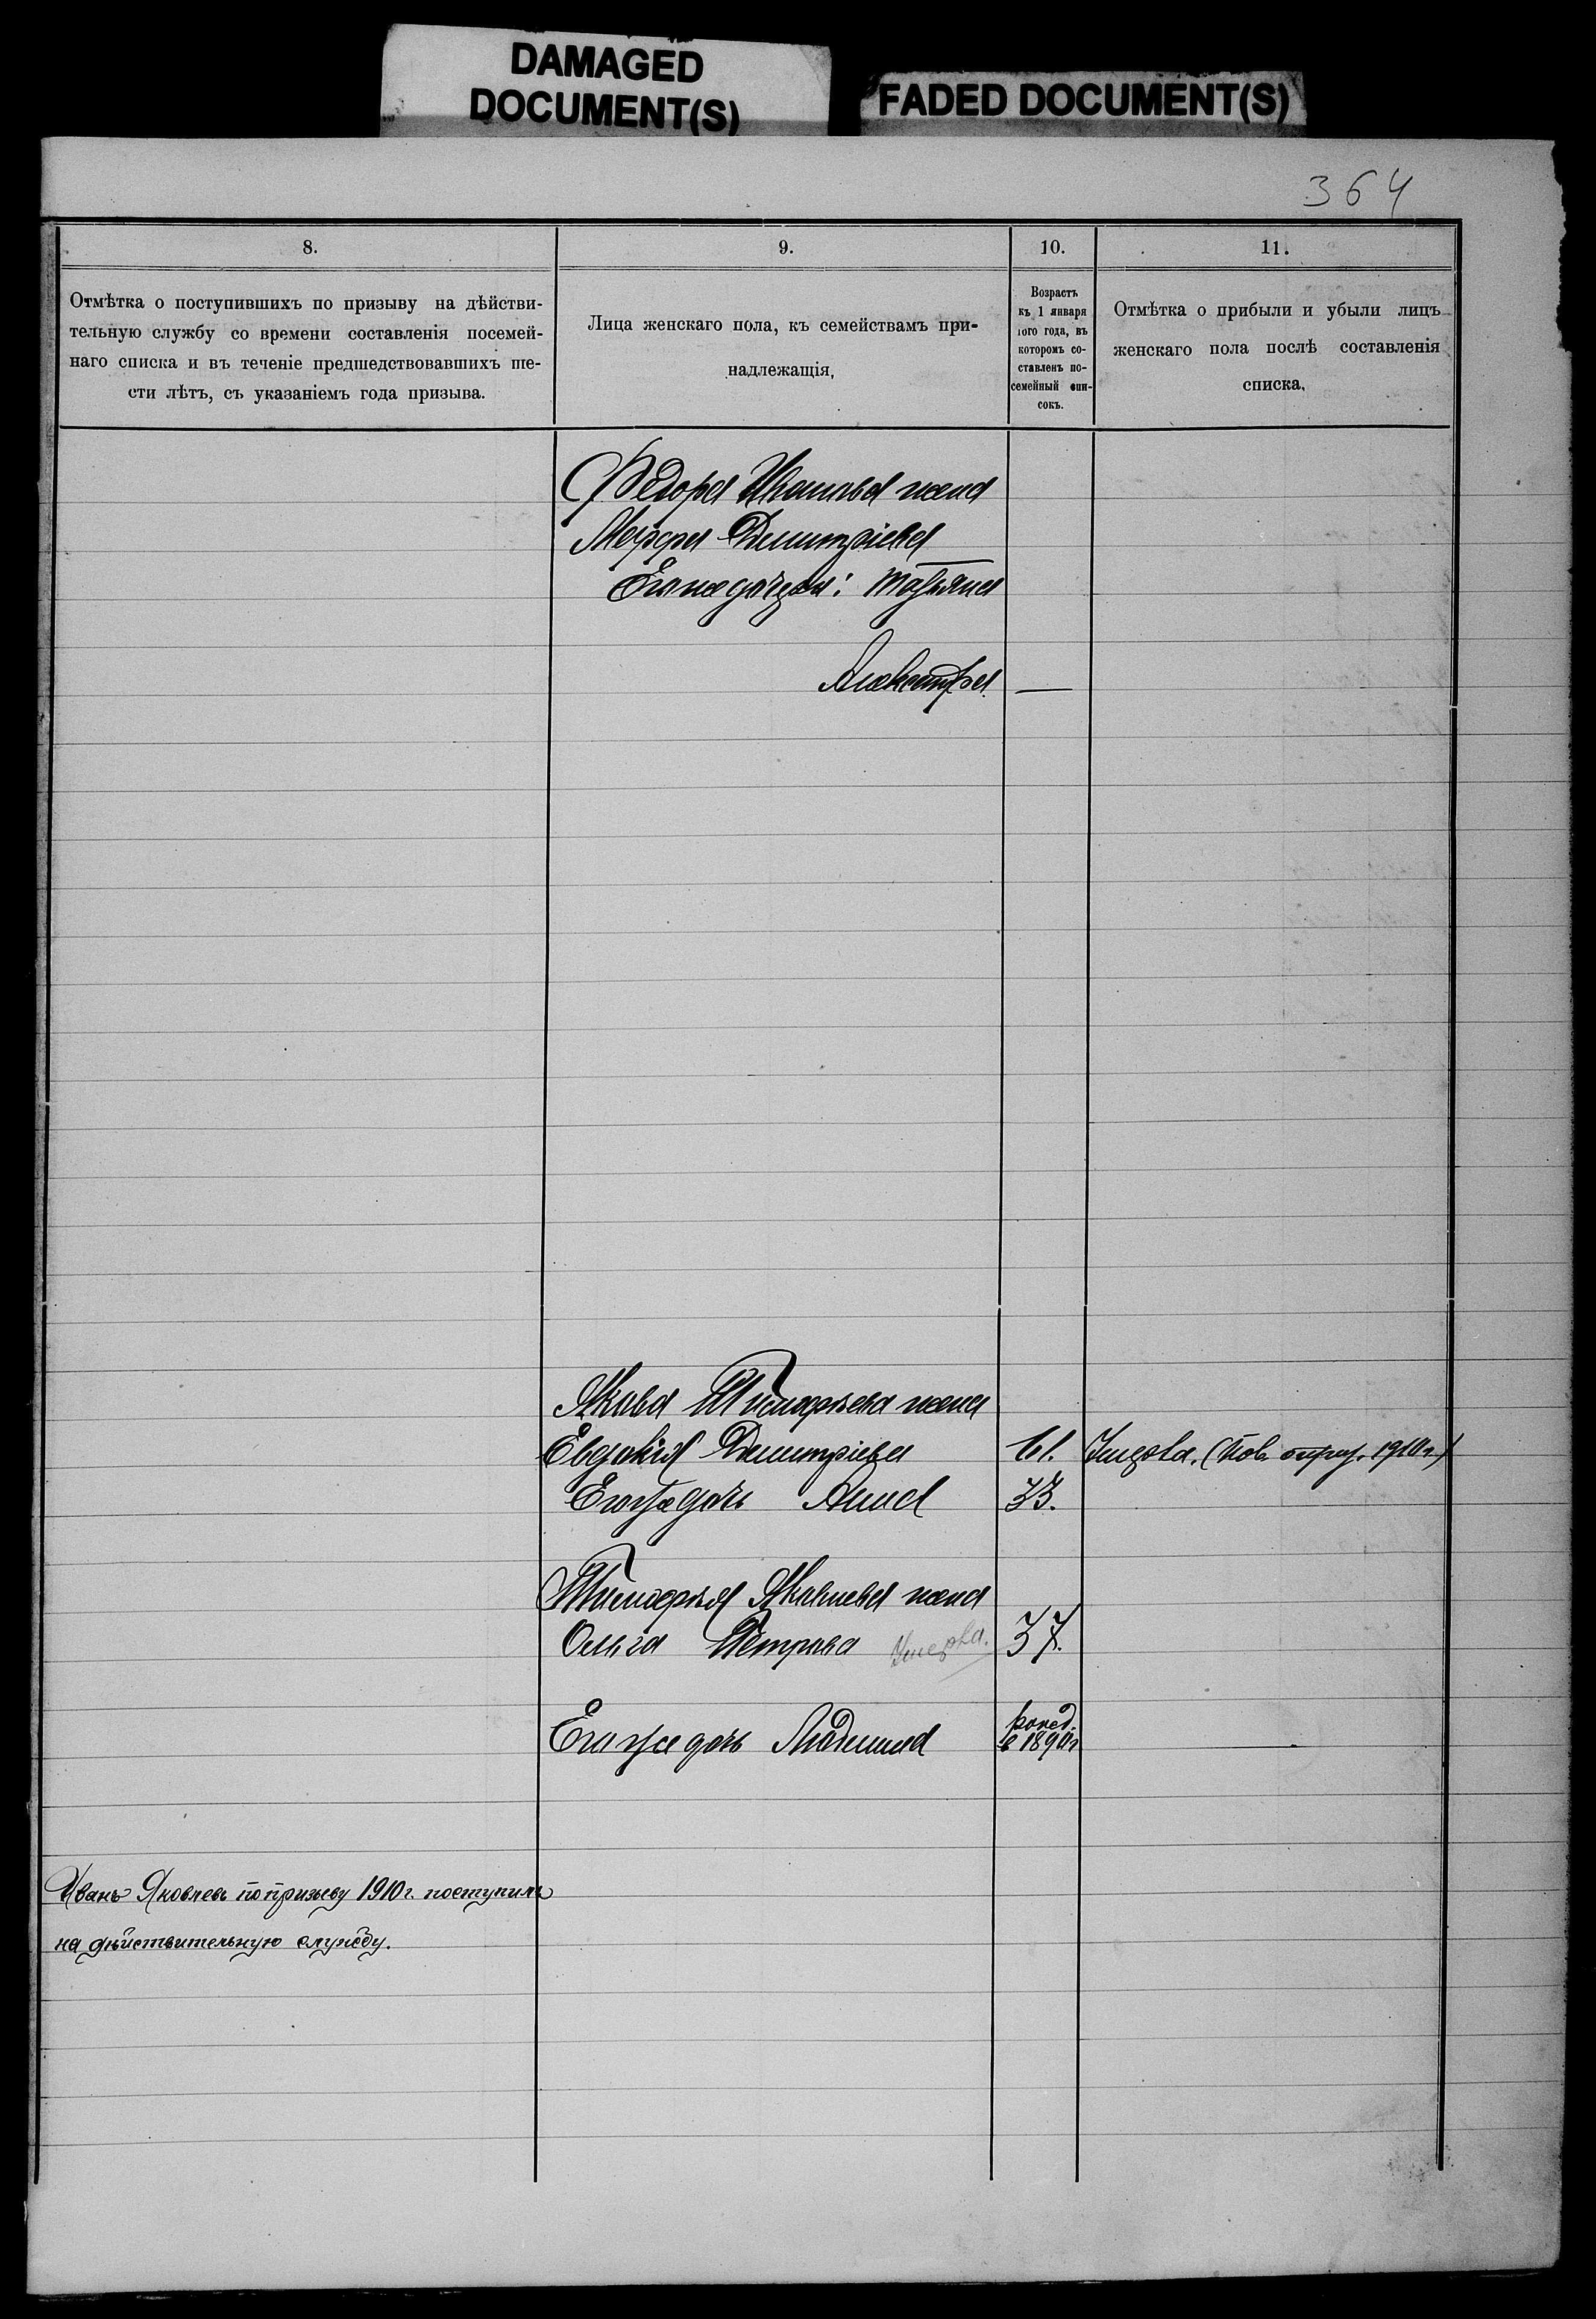 DAMAGED
DOCUMENT(S)
FADED DOCUMENT(S)
364
8.
9.
10.
11.
Отмѣтка о поступившихъ по призыву на дѣйстви-
тельную службу со времени составленія посемей-
наго списка и въ теченіе предшедствовавшихъ ше-
сти лѣтъ, съ указаніемъ года призыва.
Лица женскаго пола, къ семействамъ при-
надлежащія,
Возрастъ
къ 1 января
того года, въ
которомъ со-
ставленъ по-
семейный спи-
сокъ.
Отмѣтка о прибыли и убыли лицъ
женскаго пола послѣ составленія
списка.
Ѳедора Иванова жена
Марфа Димитріева
Его же дочери: Татьяна
Александра —
Якова Тимофѣева жена
Евдокія Димитріева 61. Умерла. (Пов. 1910 г.)
Его же дочь Анна 33.
Тимофѣя Яковлева жена
Ольга Петрова Умерла. 37.
Его же дочь Людмила
рожд.
в 1890 г
Иванъ Яковлевъ по призыву 1910 г. поступилъ
на дѣйствительную службу.